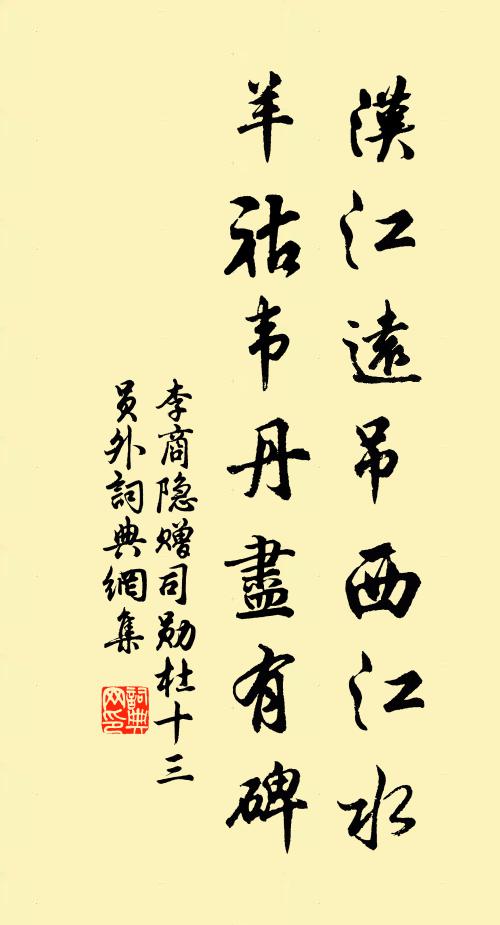 漢江遠吊西江水
羊祜韦丹盡有碑
李商隐赠司勋杜十三
員外詞典網集
詞典
网印